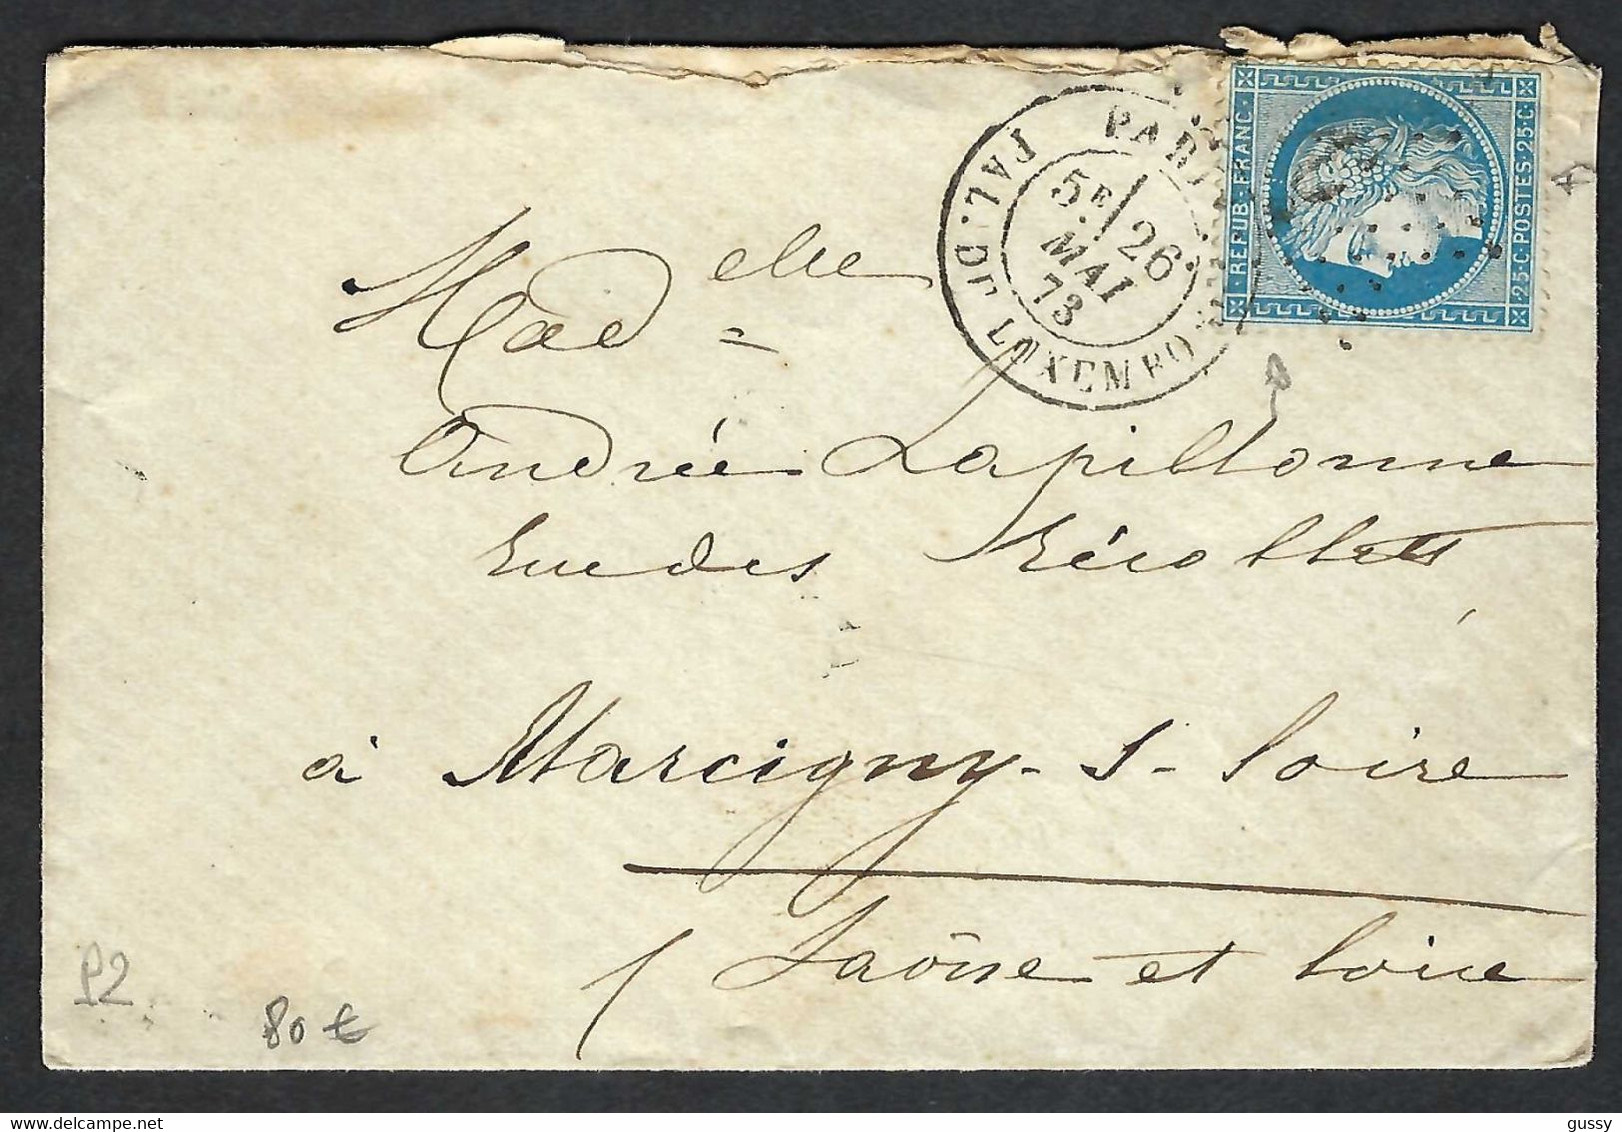 PARIS
PAL. DU LUXEMBO
5E / 26
MAI
73
REPUB. FRANC.
25·C·POSTES·25·C
Mad elle
Andrée Lapillonne
Rue des Récollets
à Marcigny-s-Loire
Saône et Loire
P2
80 €
delcampe.net
gussy